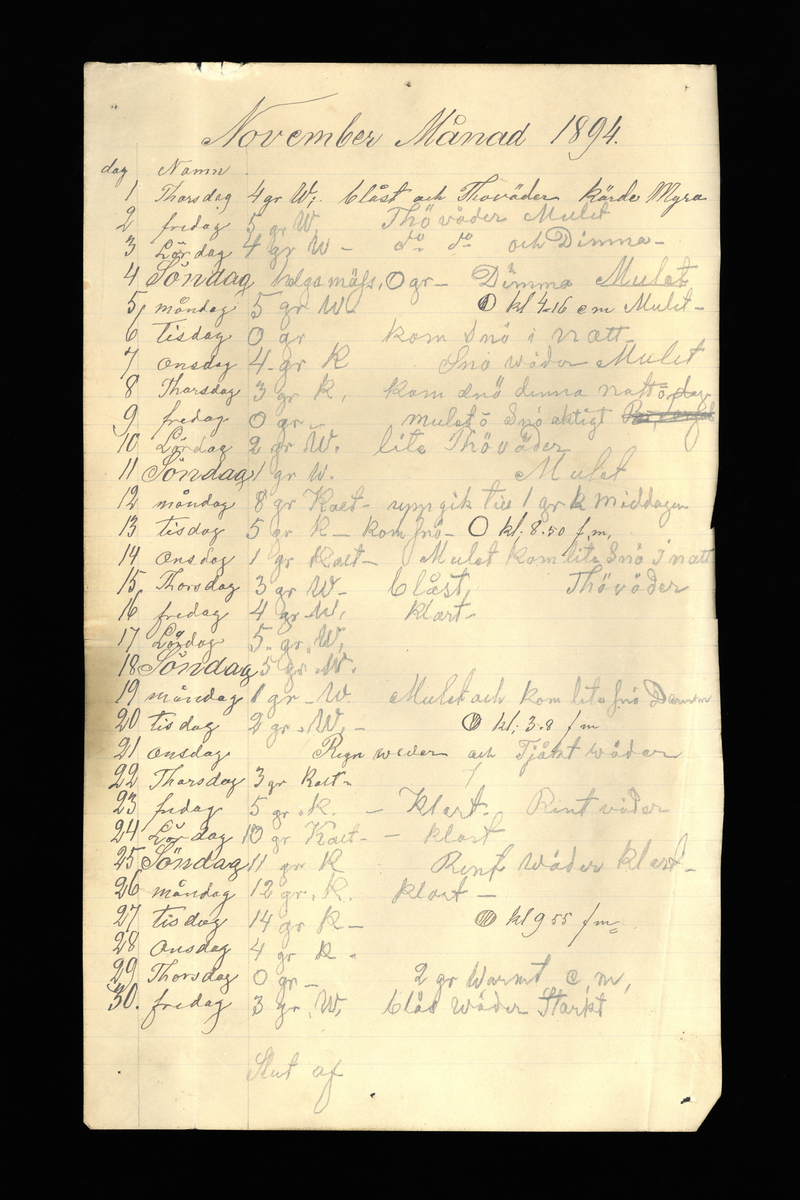 November Månad 1894.
dag Namn
1 Thorsdag 4 gr W; blåst och Thoväder körde Myra
2 fredag 5 gr W, Thöväder Mulet
3 Lördag 4 gr W - do do och Dimma -
4 Söndag helgamäss, 0 gr - Dimma Mulet
5, måndag 5 gr W - kl 4-16 e m Mulet -
6 tisdag 0 gr kom Snö i natt -
7 onsdag 4 - gr K Snö wäder Mulet
8 Thorsdag 3 gr K, kom snö denna natt o dag
9 fredag 0 gr - mulet o Snö aktigt
10 Lördag 2 gr W. lite Thöväder
11 Söndag 1 gr W. Mulet
12 måndag 8 gr Kalt - uppgik till 1 gr k Middagen
13 tisdag 5 gr K - kom snö - kl; 8.50 f m,
14 onsdag 1 gr Kalt - Mulet kom lite Snö i natt
15 Thorsdag 3 gr W - blåst Thöväder
16 fredag 4 gr W, klart -
17 Lördag 5 gr W,
18 Söndag 5 gr W.
19 måndag 1 gr W Mulet och kom lite snö
20 tisdag 2 gr W, - kl; 3.8 f m
21 onsdag Regn weder och Tjåkt wäder
22 Thorsdag 3 gr Kalt -
23 fredag 5 gr K. - Klart. Rent väder
24 Lördag 10 gr Kalt - - klart
25 Söndag 11 gr K Rent Wäder klart -
26 måndag 12 gr K. klart -
27 tisdag 14 gr K - kl 9 55 f m
28 onsdag 4 gr K -
29 Thorsdag 0 gr - 2 gr Warmt e, m,
30. fredag 3 gr W, blås Wäder Starkt
Slut af